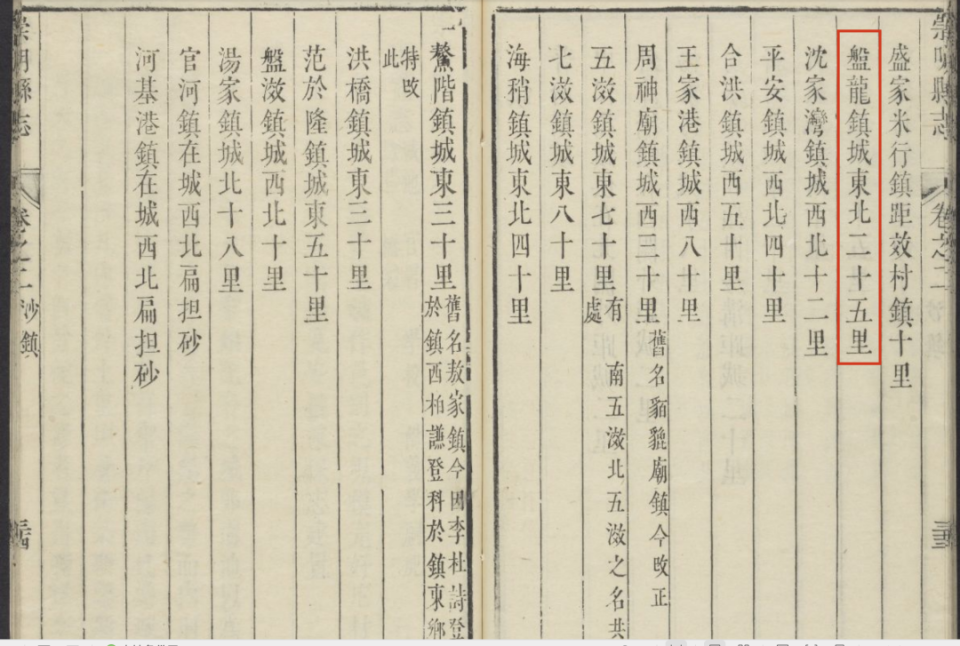 崇明縣志
卷之二
盛家米行鎮距效村鎮十里
盤龍鎮城東北二十五里
沈家灣鎮城西北十二里
平安鎮城西北四十里
合洪鎮城西五十里
王家港鎮城西八十里
周神廟鎮城西三十里舊名貊貔廟鎮今改正
五滧鎮城東七十里有南五滧北五滧之名共
處
七滧鎮城東八十里
海稍鎮城東北四十里
鰲階鎮城東三十里舊名敖家鎮今因李杜詩登
於鎮西柏謙登科於鎮東鄉
特改
此
洪橋鎮城東三十里
范於隆鎮城東五十里
盤滧鎮城西北十里
湯家鎮城北十八里
官河鎮在城西北扁担砂
河基港鎮在城西北扁担砂
崇明縣志
卷之二
沙鎮